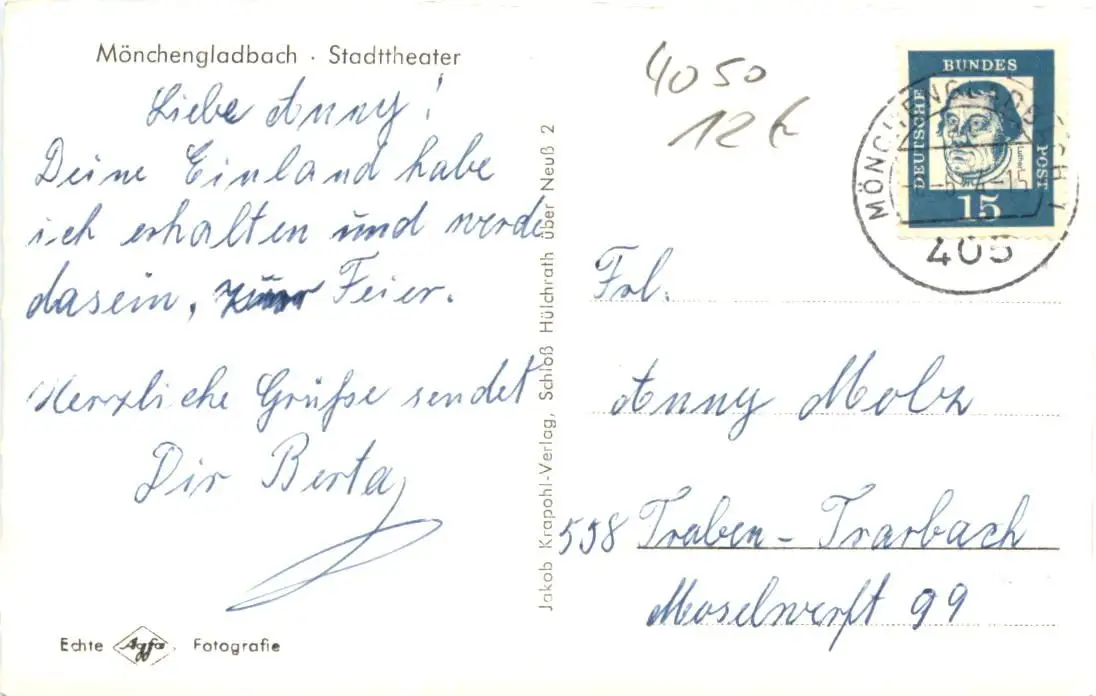 Mönchengladbach · Stadttheater
Liebe Anny!
Deine Einland habe
ich erhalten und werde
dasein, zur Feier.
Herzliche Grüße sendet
Dir Berta
Echte Agfa Fotografie
Jakob Krapohl-Verlag, Schloß Hülchrath über Neuß 2
4050
12
DEUTSCHE BUNDES POST
Luther
15
MÖNCHENGLADBACH 1
405
Frl.
Anny Molz
558 Traben-Trarbach
Moselwerft 99